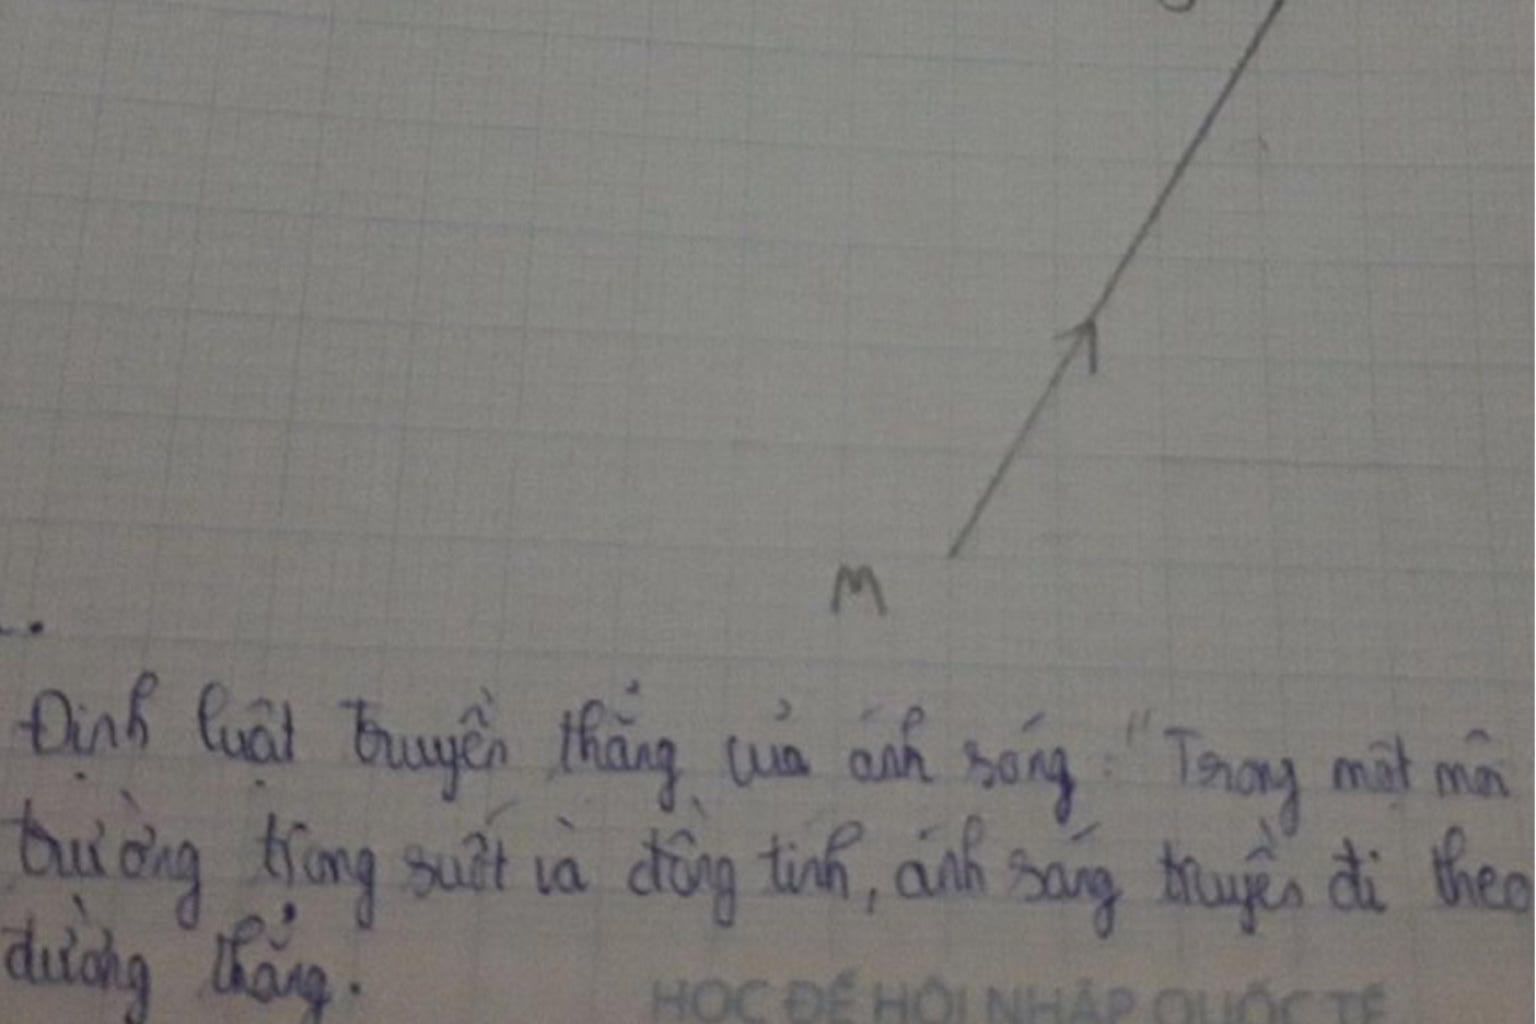 M
Định luật truyền thẳng của ánh sáng: "Trong một môi
trường trong suốt và đồng tính, ánh sáng truyền đi theo
đường thẳng.
HỌC ĐỂ HỘI NHẬP QUỐC TẾ